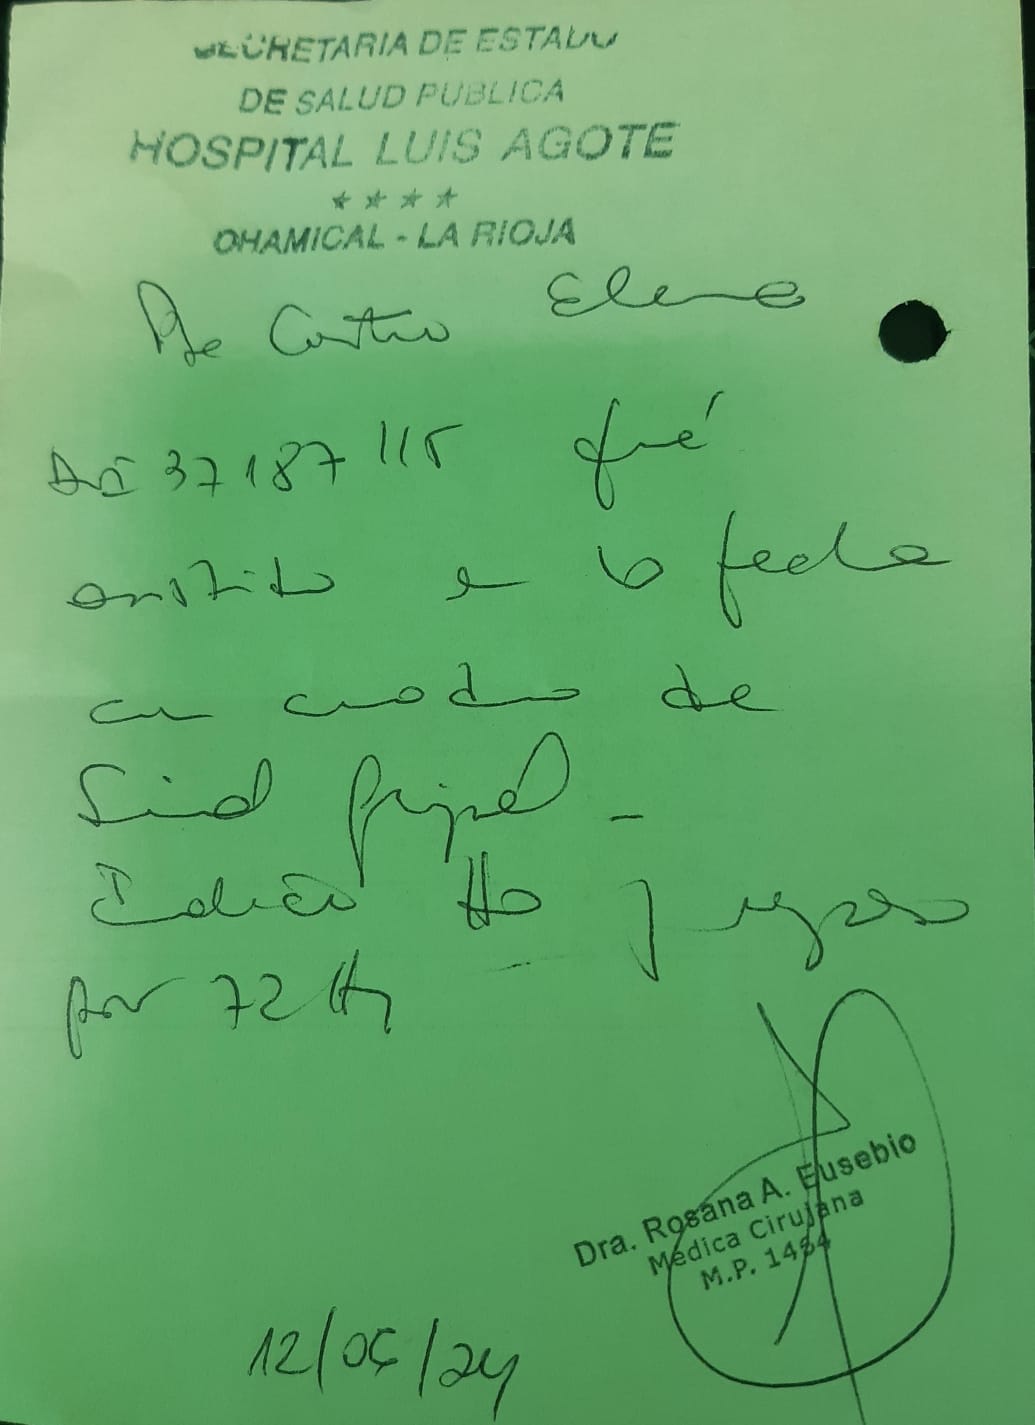 SECRETARIA DE ESTADO
DE SALUD PUBLICA
HOSPITAL LUIS AGOTE
★ ★ ★ ★
CHAMICAL - LA RIOJA
Castro Elena
DNI 37187115 fué
asistida en la fecha
en cuadro de
Sind gripal -
Indico tto y reposo
por 72 Hs
Dra. Rosana A. Eusebio
Médica Cirujana
M.P. 1484
12/05/24